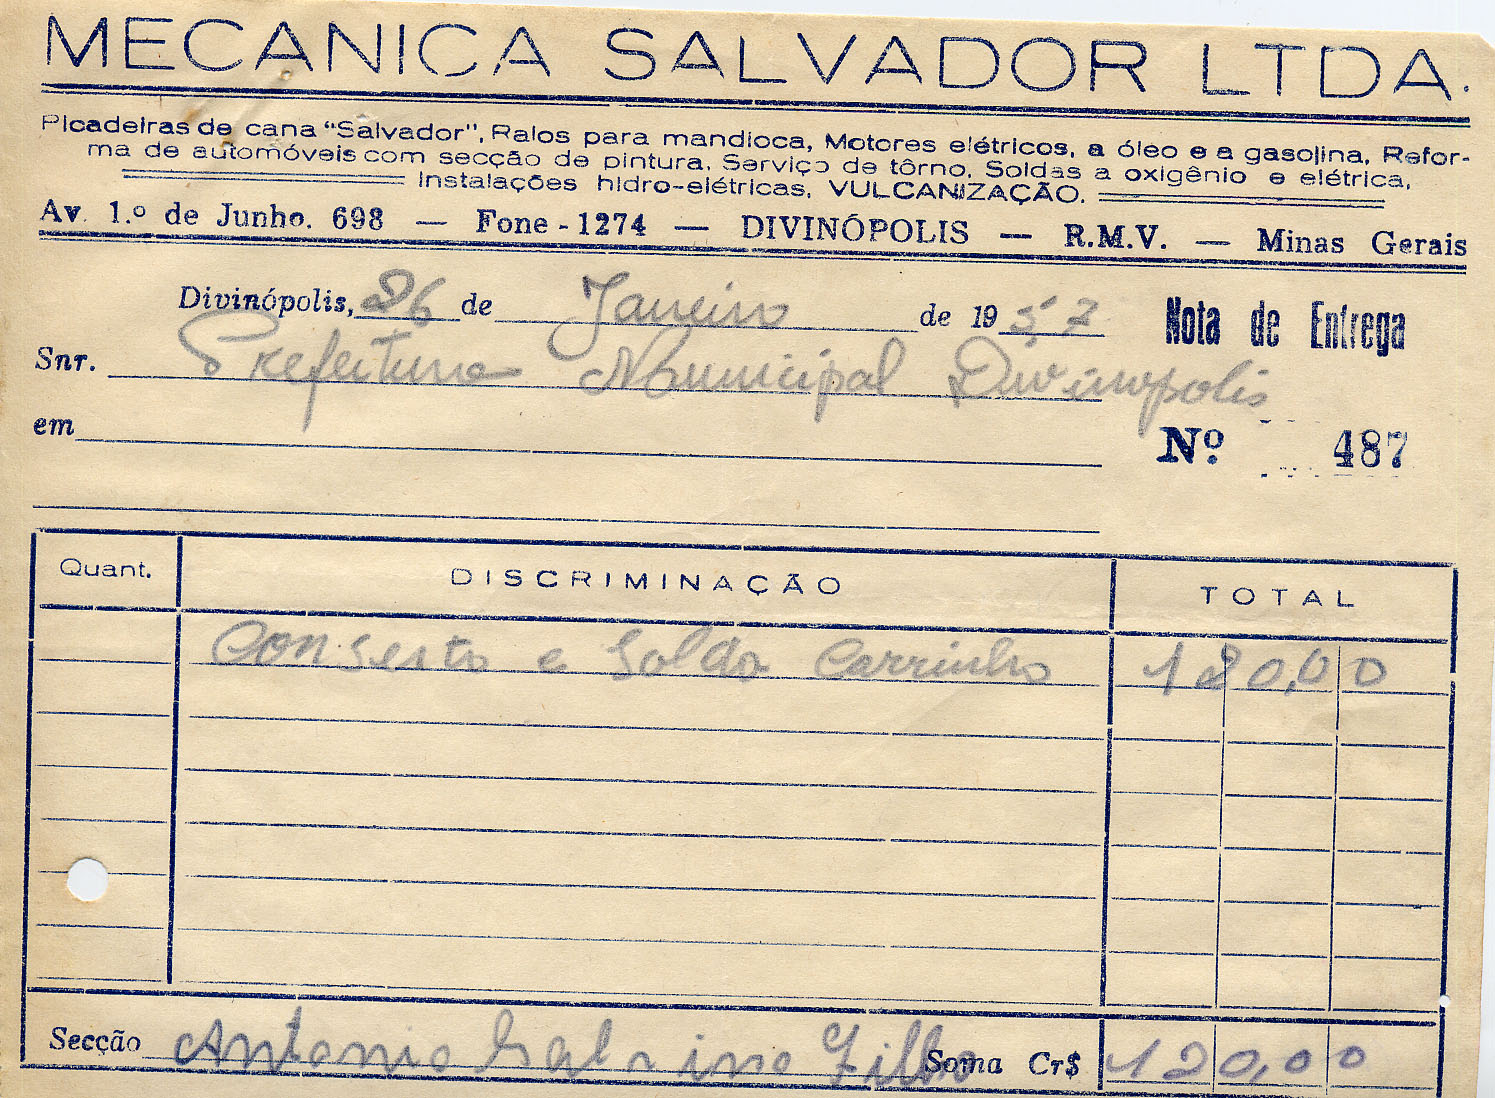 MECANICA SALVADOR LTDA.
Picadeiras de cana "Salvador", Ralos para mandioca, Motores elétricos, a óleo e a gasolina, Refor-
ma de automóveis com secção de pintura, Serviço de tôrno, Soldas a oxigênio e elétrica,
Instalações hidro-elétricas, VULCANIZAÇÃO.
Av. 1.º de Junho. 698 — Fone - 1274 — DIVINÓPOLIS — R.M.V. — Minas Gerais
Divinópolis, 26 de Janeiro de 1957 Nota de Entrega
Snr. Prefeitura Municipal Divinopolis
em Nº 487
Quant. DISCRIMINAÇÃO TOTAL
Conserto e Solda Carrinho 120,00
Secção Antonio Filho Soma Cr$ 120,00